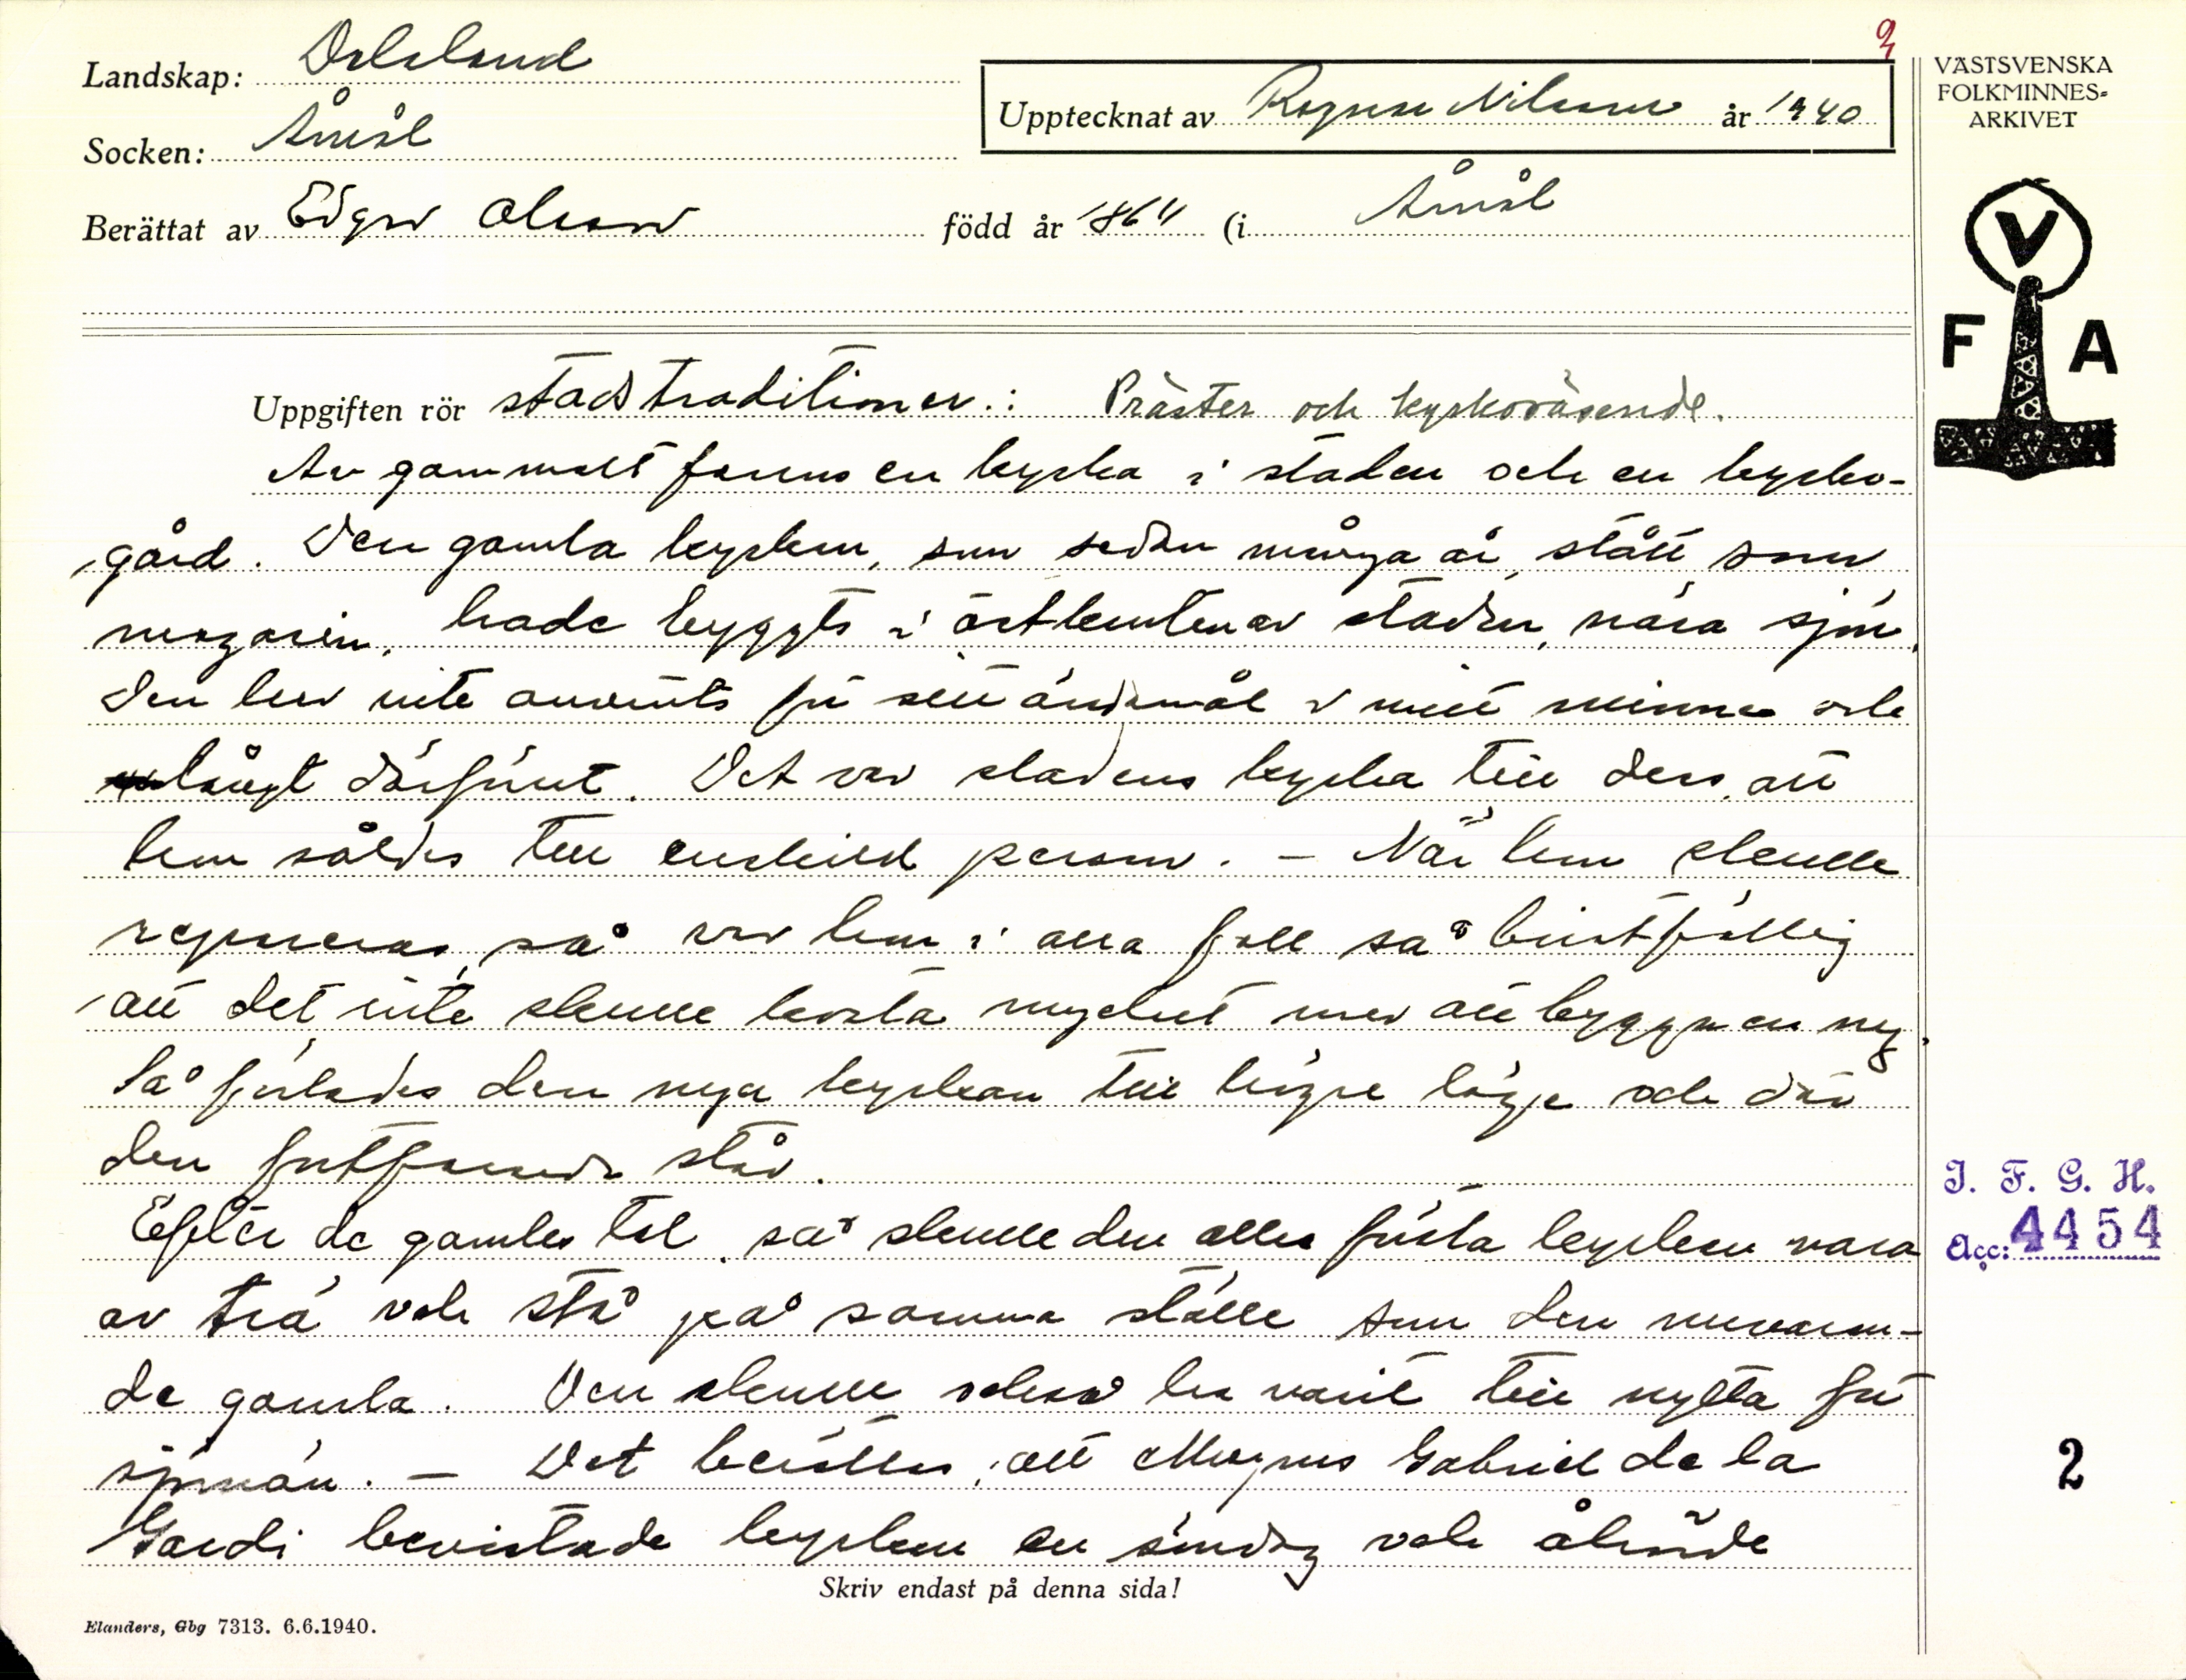 Landskap: Dalsland
Socken: Åmål
Upptecknat av Ragnar Nilsson år 1940
Berättat av Edgar Olsson född år 1864 (i Åmål
VÄSTSVENSKA
FOLKMINNES-
ARKIVET
V
F A
Uppgiften rör stadstraditioner.: Präster och kyrkoväsende.
Av gammalt fanns en kyrka i staden och en kyrko-
gård. Den gamla kyrkan, som sedan många år stått som
magasin, hade byggts i östkanten av staden, nära sjön,
den har inte använts för sitt ändamål i mitt minne och
långt därförut. Det var stadens kyrka till dess, att
han såldes till enskild person. – När han skulle
repareras, så var han i alla fall så bristfällig
att det inte skulle kosta mycket mer att bygga en ny,
Så förlades den nya kyrkan till högre läge och där
den fortfarande står.
Efter de gamles tal, så skulle den allra första kyrkan vara
av trä och stå på samma ställe som den nuvaran-
de gamla. Den skulle också ha varit till nytta för
sjömän. – Det berättas, att Magnus Gabriel de la
Gardi bevistade kyrkan en söndag och åhörde
Skriv endast på denna sida!
Elanders, Gbg 7313. 6.6.1940.
I. F. G. H.
Acc: 4454
2